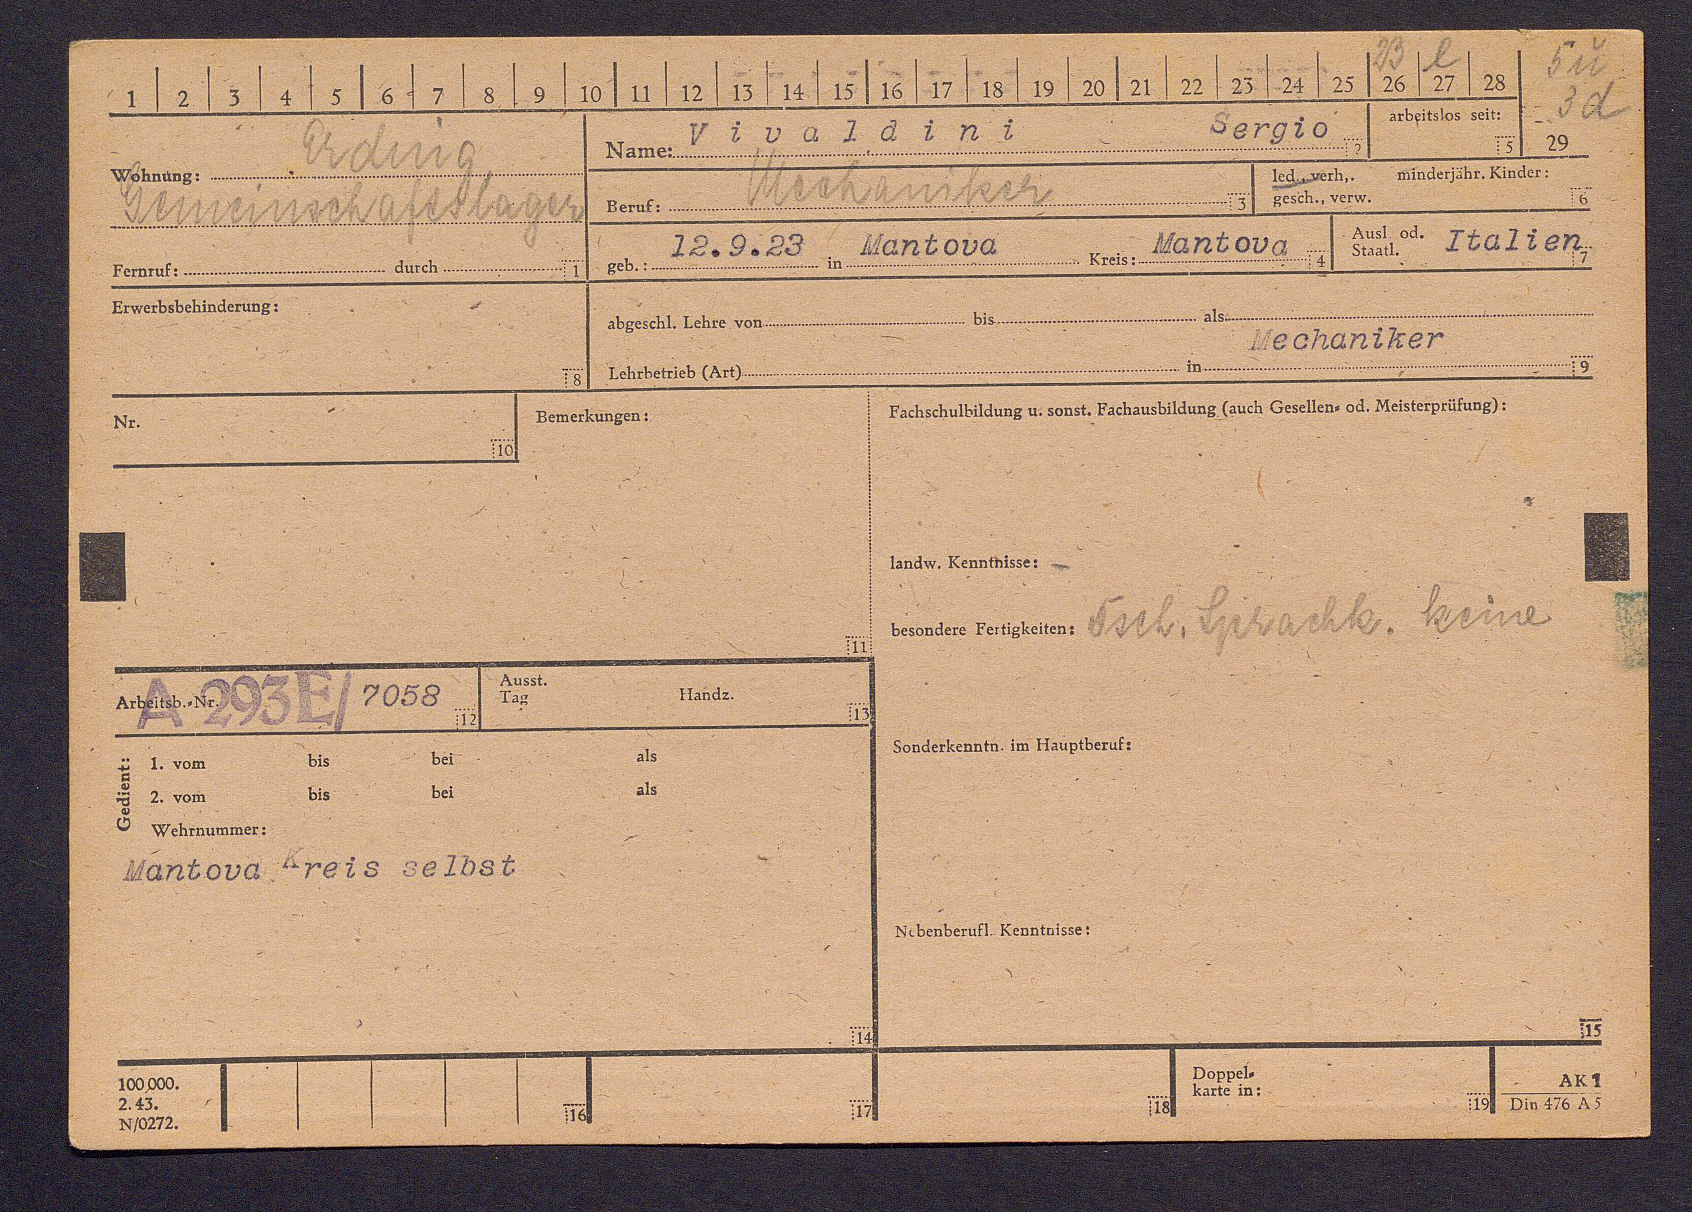 23 l 5ü
1 2 3 4 5 6 7 8 9 10 11 12 13 14 15 16 17 18 19 20 21 22 23 24 25 26 27 28
3d
29
Erding
Wohnung:
Gemeinschaftslager
Fernruf: durch 1
Name: Vivaldini Sergio 2
arbeitslos seit: 5
Beruf: Mechaniker 3
led., verh,. minderjähr. Kinder:
gesch., verw. 6
geb.: 12.9.23 in Mantova Kreis: Mantova 4
Ausl. od. Italien
Staatl. 7
Erwerbsbehinderung:
8
abgeschl. Lehre von bis als
Mechaniker
Lehrbetrieb (Art) in 9
Nr.
10
Bemerkungen:
11
Fachschulbildung u. sonst. Fachausbildung (auch Gesellen- od. Meisterprüfung):
landw. Kenntnisse: –
besondere Fertigkeiten: Dsch. Sprachk. keine
Arbeitsb.-Nr. A 293E/ 7058 12
Ausst.
Tag Handz. 13
Gedient:
1. vom bis bei als
2. vom bis bei als
Wehrnummer:
Mantova Kreis selbst
14
Sonderkenntn. im Hauptberuf:
Nebenberufl. Kenntnisse:
15
100 000.
2. 43.
N/0272.
16
17
18
Doppel-
karte in: 19
AK 1
Din 476 A 5